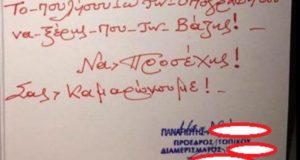 να-ξέρης-που-την-Βάζης!
Να-Προσέχης!
Σας-Καμαρώνουμε!-
ΠΑΝΑΓΙΩΤΗΣ
ΠΡΟΕΔΡΟΣ ΤΟΠΙΚΟΥ
ΔΙΑΜΕΡΙΣΜΑΤΟΣ